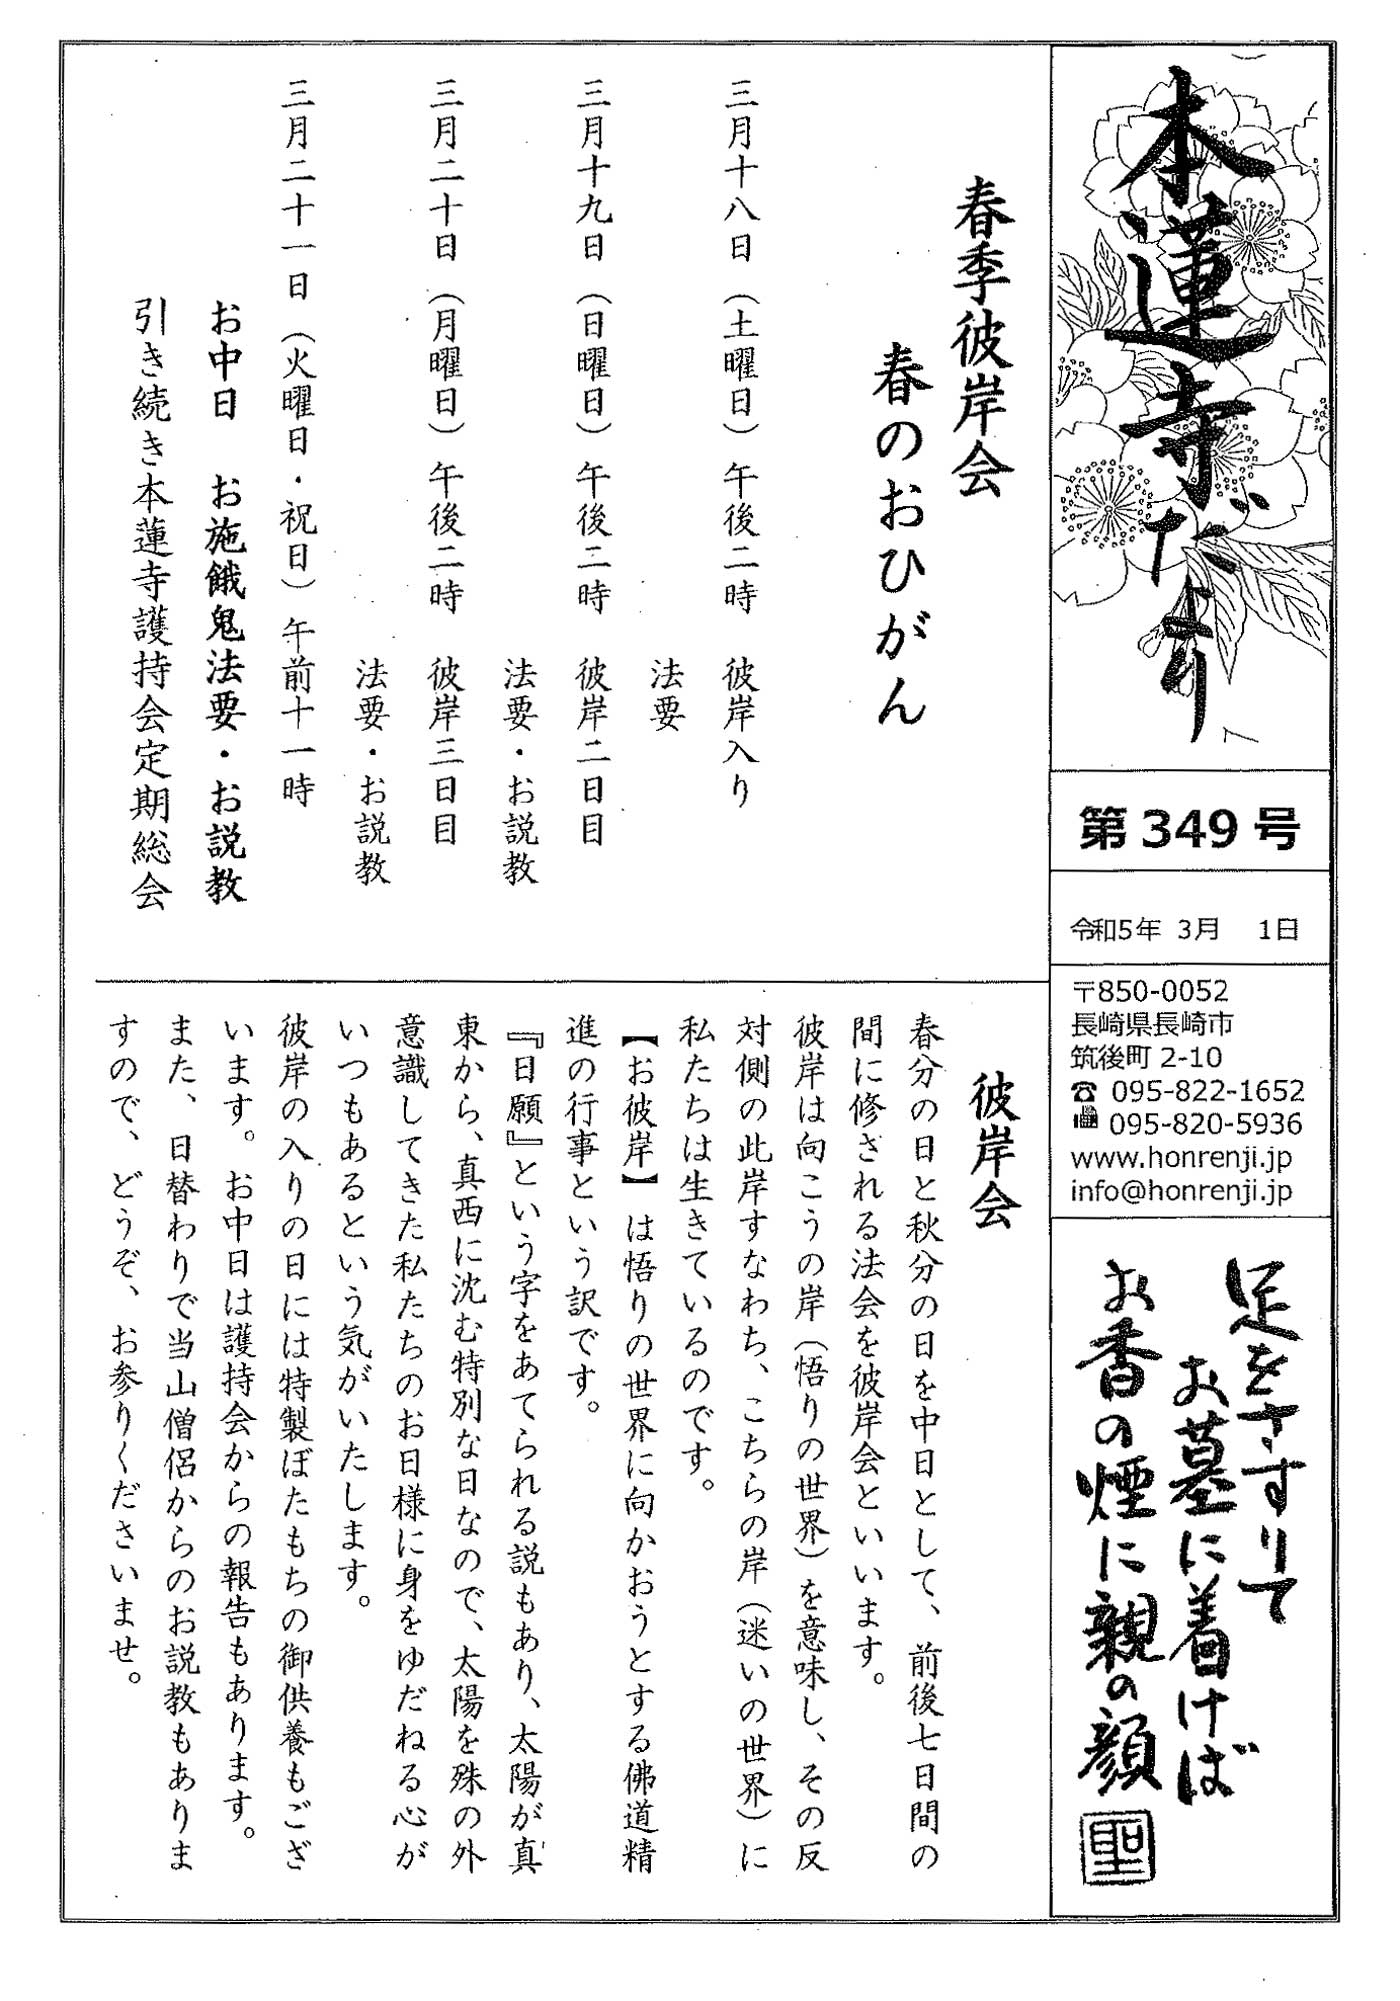 本蓮寺だより
第349号
令和5年 3月 1日
〒850-0052
長崎県長崎市
筑後町 2-10
☎ 095-822-1652
095-820-5936
www.honrenji.jp
info@honrenji.jp
足をさすりて
お墓に着けば
お香の煙に親の顔
聖
春季彼岸会
春のおひがん
三月十八日（土曜日）午後二時 彼岸入り
法要
三月十九日（日曜日）午後二時 彼岸二日目
法要・お説教
三月二十日（月曜日）午後二時 彼岸三日目
法要・お説教
三月二十一日（火曜日・祝日）午前十一時
お中日 お施餓鬼法要・お説教
引き続き本蓮寺護持会定期総会
彼岸会
春分の日と秋分の日を中日として、前後七日間の
間に修される法会を彼岸会といいます。
彼岸は向こうの岸（悟りの世界）を意味し、その反
対側の此岸すなわち、こちらの岸（迷いの世界）に
私たちは生きているのです。
【お彼岸】は悟りの世界に向かおうとする佛道精
進の行事という訳です。
『日願』という字をあてられる説もあり、太陽が真
東から、真西に沈む特別な日なので、太陽を殊の外
意識してきた私たちのお日様に身をゆだねる心が
いつもあるという気がいたします。
彼岸の入りの日には特製ぼたもちの御供養もござ
います。お中日は護持会からの報告もあります。
また、日替わりで当山僧侶からのお説教もありま
すので、どうぞ、お参りくださいませ。